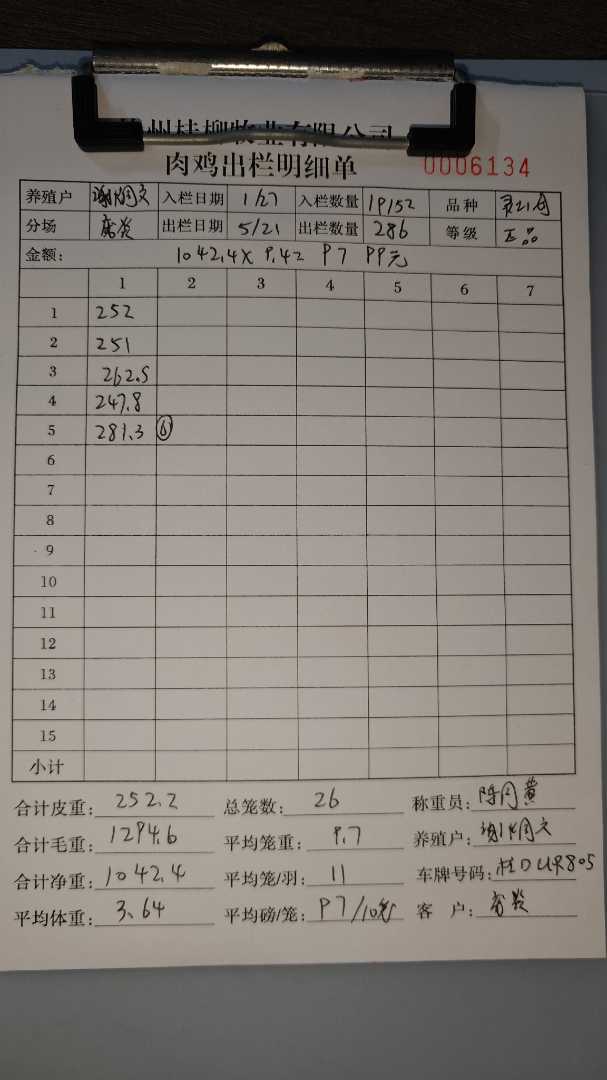 州桂柳牧业有限公司
肉鸡出栏明细单 0006134
养殖户 入栏日期 1/27 入栏数量 19152 品种
分场 出栏日期 5/21 出栏数量 286 等级 正品
金额: 1042.4× 9.42 9799元
1 2 3 4 5 6 7
1 252
2 251
3 262.5
4 247.8
5 281.3 ⑥
6
7
8
9
10
11
12
13
14
15
小计
合计皮重: 252.2 总笼数: 26 称重员:
合计毛重: 1294.6 平均笼重: 9.7 养殖户:
合计净重: 1042.4 平均笼/羽: 11 车牌号码:
平均体重: 3.64 平均磅/笼: 97/10笼 客 户: